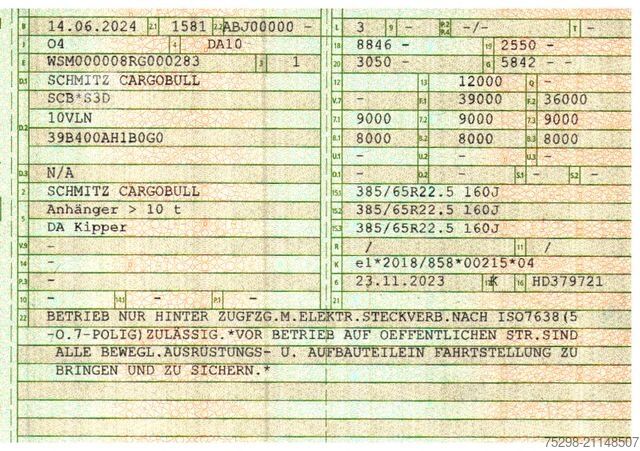 B 14.06.2024 2.1 1581 2.2 ABJ00000 -
J 04 4 DA10
E WSM000008RG000283 3 1
D.1 SCHMITZ CARGOBULL
SCB*S3D
D.2 10VLN
39B400AH1B0G0
D.3 N/A
2 SCHMITZ CARGOBULL
5 Anhänger > 10 t
DA Kipper
V.9 -
14 -
P.3 -
10 - 14.1 - P.1 -
L 3 9 - P.2 P.4 -/- T -
18 8846 - 19 2550 -
20 3050 - G 5842 - -
12 - 13 12000 Q -
V.7 - F.1 39000 F.2 36000
7.1 9000 7.2 9000 7.3 9000
8.1 8000 8.2 8000 8.3 8000
U.1 - U.2 - U.3 -
O.1 - O.2 - S.1 - S.2 -
15.1 385/65R22.5 160J
15.2 385/65R22.5 160J
15.3 385/65R22.5 160J
R / 11 /
K e1*2018/858*00215*04
6 23.11.2023 17 K 16 HD379721
21
22 BETRIEB NUR HINTER ZUGFZG.M.ELEKTR.STECKVERB.NACH ISO7638(5
-O.7-POLIG)ZULÄSSIG.*VOR BETRIEB AUF OEFFENTLICHEN STR.SIND
ALLE BEWEGL.AUSRÜSTUNGS- U. AUFBAUTEILEIN FAHRTSTELLUNG ZU
BRINGEN UND ZU SICHERN.*
75298-21148507